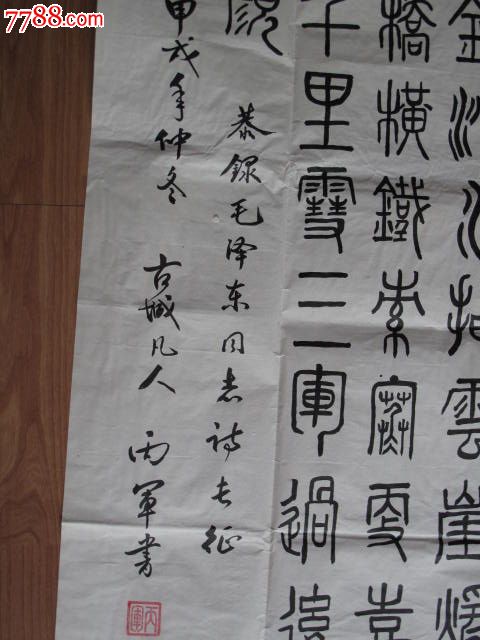 7788.com
金沙水拍雲崖煖
橋橫鐵索寒更喜
千里雪三軍過後
顏
恭録毛泽东同志詩长征
甲戌年仲冬 古城凡人 丙軍書